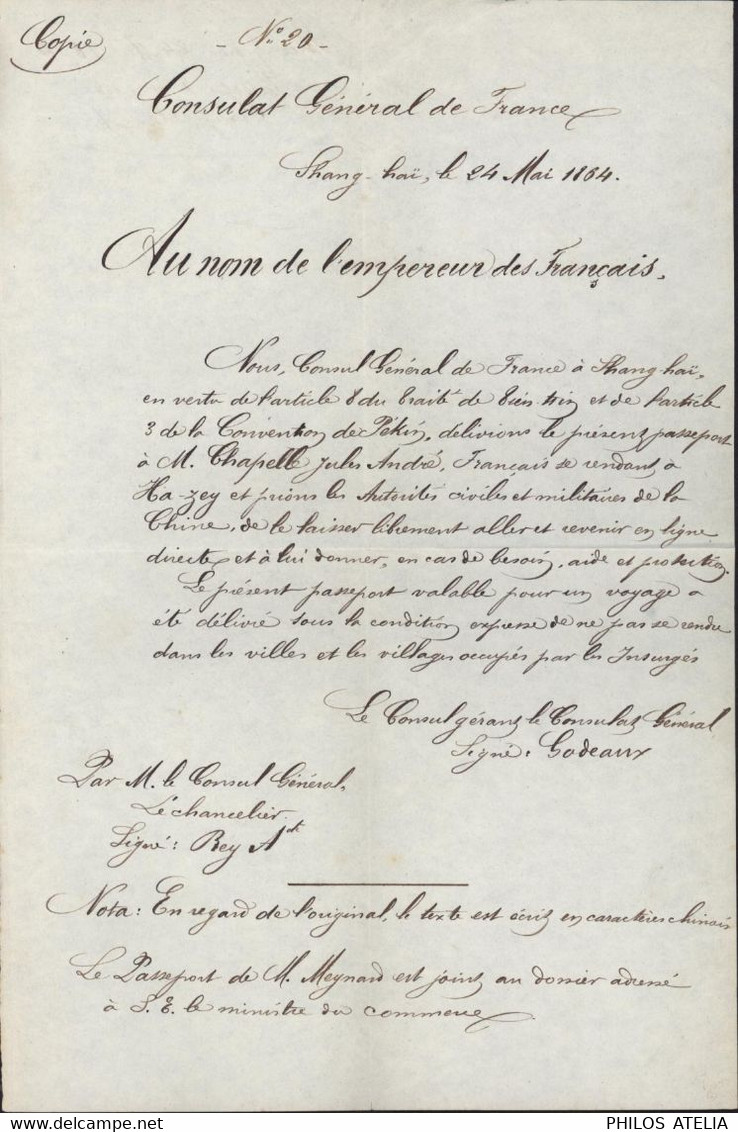 Copie
- N.º 20 -
Consulat Général de France
Shang-haï, le 24 Mai 1864.
Au nom de l'empereur des Français.
Nous, Consul Général de France à Shang-haï,
en vertu de l'article 8 du Traité de Tien-tsin et de l'article
3 de la Convention de Pékin, délivrons le présent passeport
à M. Chapelle Jules André, Français se rendant à
Ha-zey et prions les Autorités civiles et militaires de la
Chine, de le laisser librement aller et revenir en ligne
directe et à lui donner, en cas de besoin, aide et protection.
Le présent passeport valable pour un voyage a
été délivré sous la condition expresse de ne pas se rendre
dans les villes et les villages occupés par les Insurgés
Le Consul gérant le Consulat Général
Signé: Godeaux
Par M. le Consul Général,
Le chancelier.
Signé: Rey A
Nota: En regard de l'original, le texte est écrit en caractères chinois
Le Passeport de M. Meynard est joint au dossier adressé
à S. E. le ministre du commerce.
PHILOS ATELIA